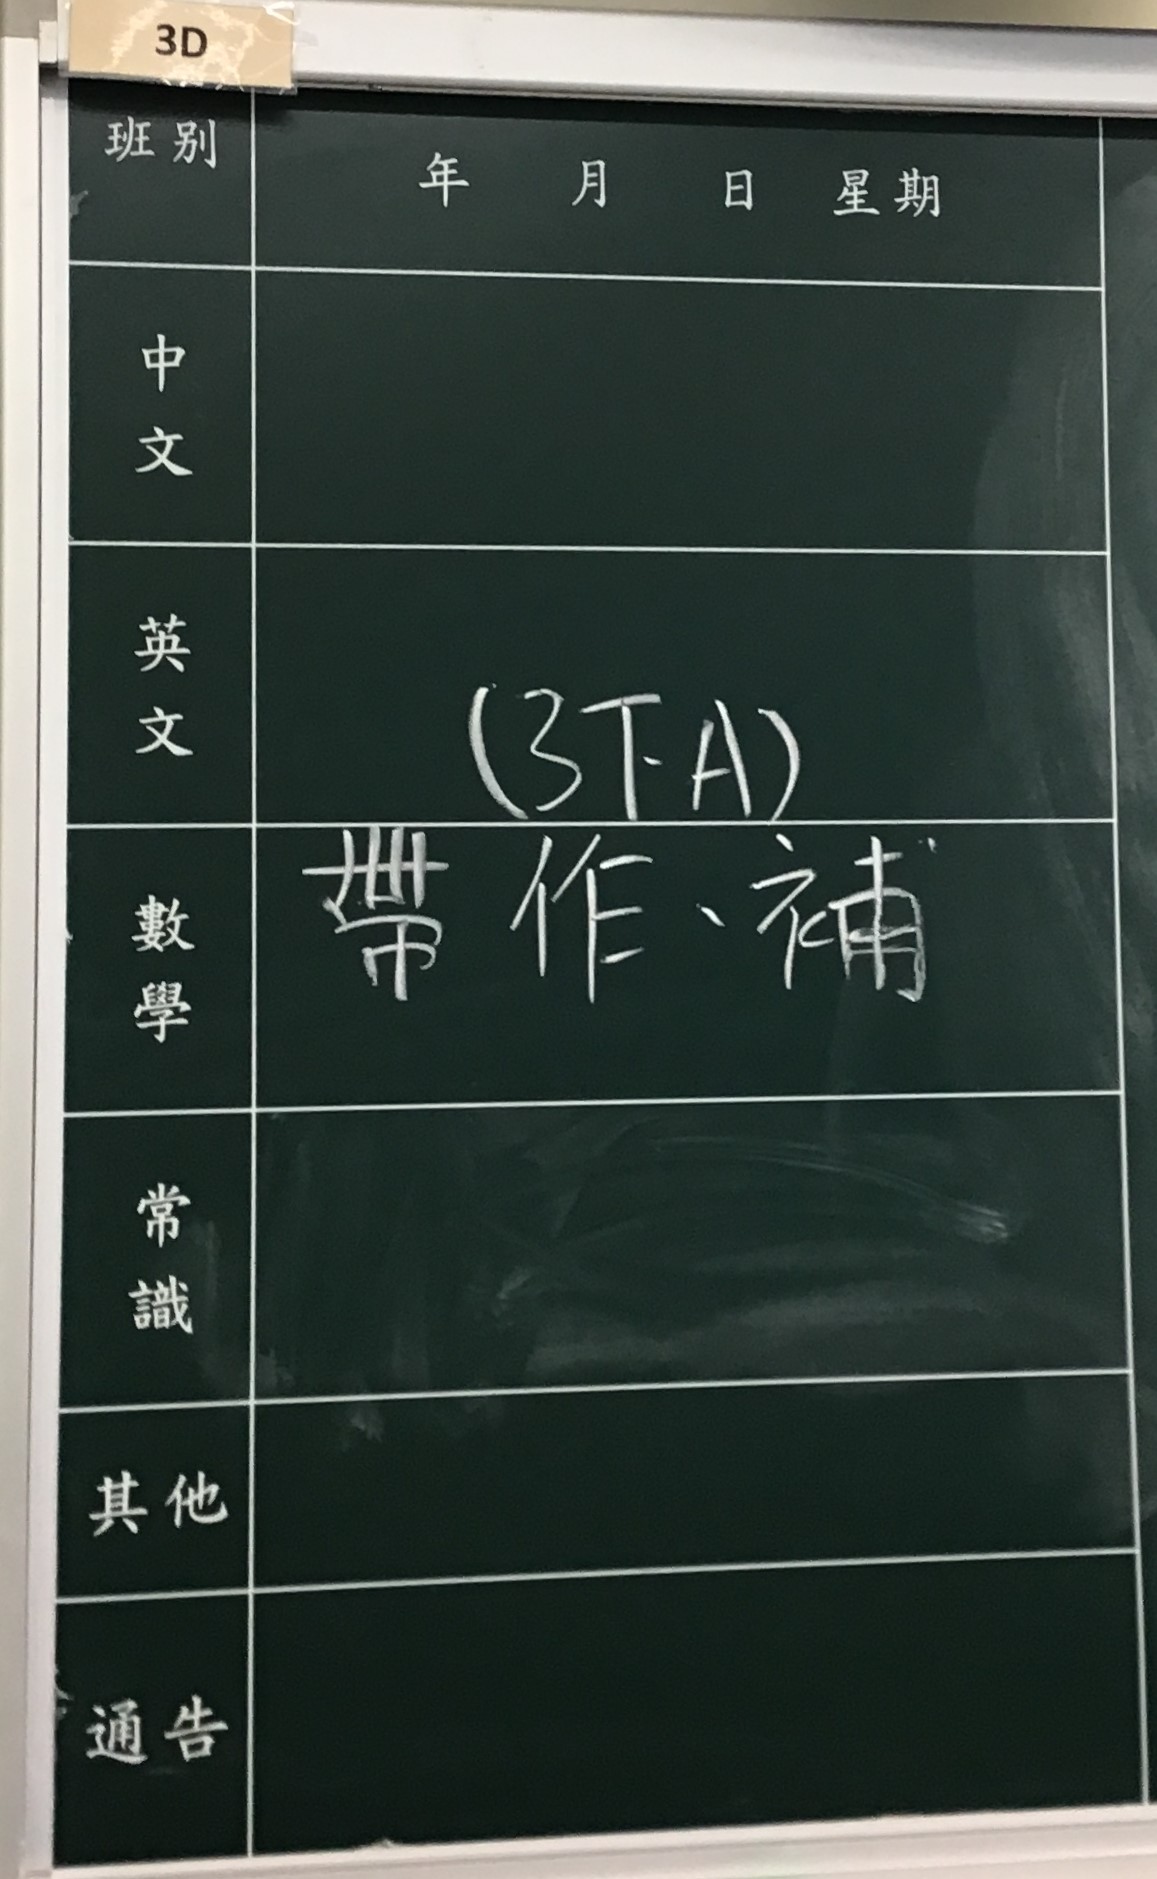 3D
班別
年 月 日 星期
中文
英文
(3下A)
數學
帶作、補
常識
其他
通告